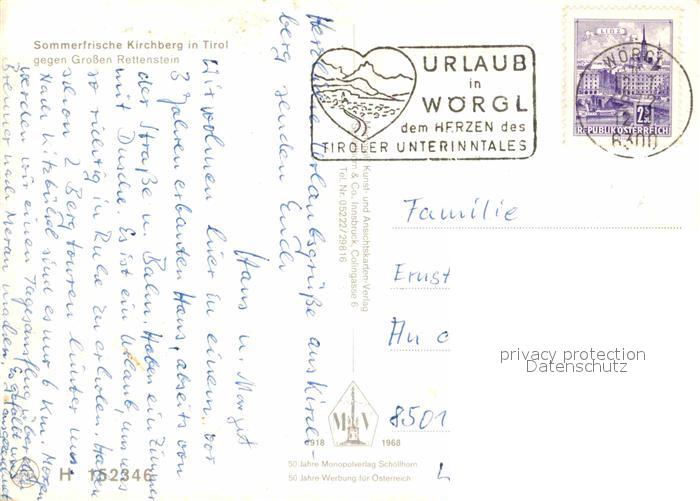 Sommerfrische Kirchberg in Tirol
gegen Großen Rettenstein
URLAUB
in
WÖRGL
dem HERZEN des
TIROLER UNTERINNTALES
LINZ
2.50
REPUBLIK ÖSTERREICH
WÖRGL
6300
Herzliche Urlaubsgrüße aus Kirch-
berg senden Euch
Hans u. Margit
Wir wohnen hier in einem vor
3 Jahren erbauten Haus, abseits von
der Straße u. Bahn. Haben ein Zimmer
mit Dusche. Es ist ein Urlaub, um es
so richtig in Ruhe zu erholen. Haben
schon 2 Bergtouren hinter uns.
Nach Kitzbühel sind es nur 6 km. Morgen
werden wir einen Tagesausflug über den
Brenner nach Meran machen. Es gefällt uns
ausgezeichnet
Kunst- und Ansichtskarten-Verlag
& Co., Innsbruck, Colingasse 6
Tel. Nr. 05222/29816
Familie
Ernst
An
8501
privacy protection
Datenschutz
M V
1918 1968
50 Jahre Monopolverlag Schöllhorn
50 Jahre Werbung für Österreich
H 152346